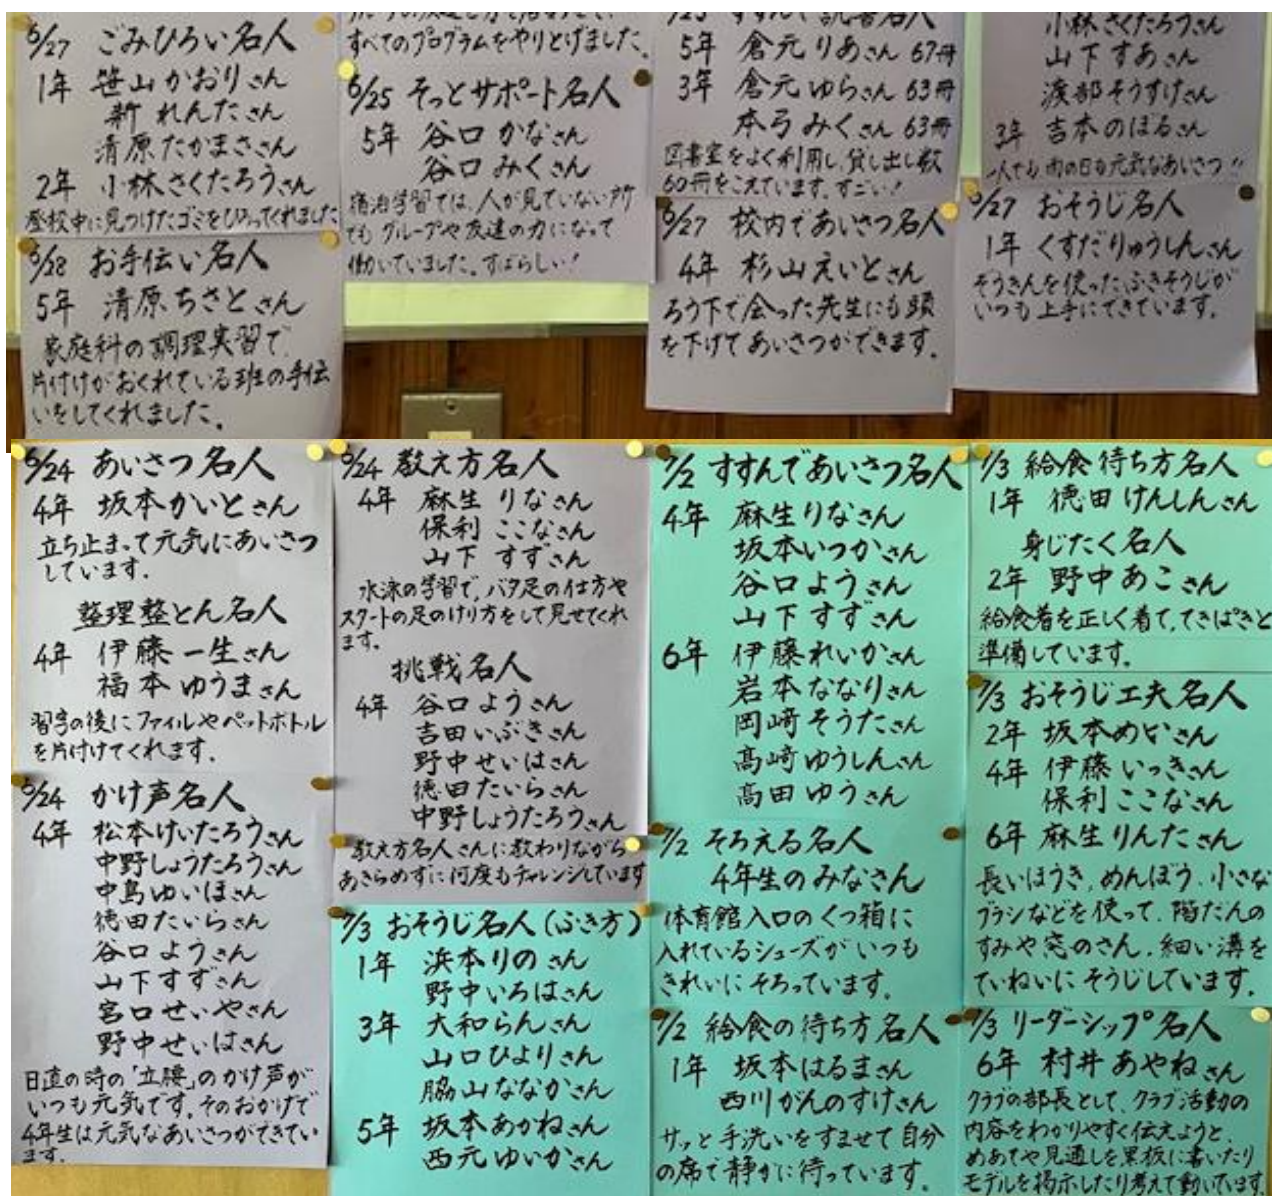 6/27 ごみひろい名人
1年 笹山かおりさん
新 れんたさん
清原たかまささん
2年 小林さくたろうさん
登校中に見つけたゴミをひろってくれました
6/28 お手伝い名人
5年 清原ちさとさん
家庭科の調理実習で、
片付けがおくれている班の手伝
いをしてくれました。
すべてのプログラムをやりとげました。
6/25 そっとサポート名人
5年 谷口かなさん
谷口みくさん
宿泊学習では、人が見ていない所
でもグループや友達の力になって
働いていました。すばらしい!
すすんで読書名人
5年 倉元りあさん 67冊
3年 倉元ゆらさん 63冊
本弓みくさん 63冊
図書室をよく利用し、貸し出し数
60冊をこえています。すごい!
6/27 校内であいさつ名人
4年 杉山えいとさん
ろう下で会った先生にも頭
を下げてあいさつができます。
小林さくたろうさん
山下すあさん
渡部そうすけさん
3年 吉本のぼるさん
一人でも雨の日も元気なあいさつ!!
6/27 おそうじ名人
1年 くすだりゅうしんさん
ぞうきんを使ったふきそうじが
いつも上手にできています。
6/24 あいさつ名人
4年 坂本かいとさん
立ち止まって元気にあいさつ
しています。
整理整とん名人
4年 伊藤一生さん
福本ゆうまさん
習字の後にファイルやペットボトル
を片付けてくれます。
6/24 かけ声名人
4年 松本けいたろうさん
中野しょうたろうさん
中島ゆいほさん
徳田たいらさん
谷口ようさん
山下すずさん
宮口せいやさん
野中せいはさん
日直の時の「立腰」のかけ声が
いつも元気です。そのおかげで
4年生は元気なあいさつができてい
ます。
6/24 教え方名人
4年 麻生りなさん
保利ここなさん
山下すずさん
水泳の学習で、バタ足の仕方や
スタートの足のけり方をして見せてくれ
ます。
挑戦名人
4年 谷口ようさん
吉田いぶきさん
野中せいはさん
徳田たいらさん
中野しょうたろうさん
教え方名人さんに教わりながら
あきらめずに何度もチャレンジしています
7/3 おそうじ名人(ふき方)
1年 浜本りのさん
野中いろはさん
3年 大和らんさん
山口ひよりさん
脇山ななかさん
5年 坂本あかねさん
西元ゆいかさん
7/2 すすんであいさつ名人
4年 麻生りなさん
坂本いつかさん
谷口ようさん
山下すずさん
6年 伊藤れいかさん
岩本ななりさん
岡﨑そうたさん
髙﨑ゆうしんさん
髙田ゆうさん
7/2 そろえる名人
4年生のみなさん
体育館入口のくつ箱に
入れているシューズがいつも
きれいにそろっています。
7/2 給食の待ち方名人
1年 坂本はるまさん
西川がんのすけさん
サッと手洗いをすませて自分
の席で静かに待っています。
7/3 給食待ち方名人
1年 徳田けんしんさん
身じたく名人
2年 野中あこさん
給食着を正しく着て、てきぱきと
準備しています。
7/3 おそうじ工夫名人
2年 坂本めいさん
4年 伊藤いっきさん
保利ここなさん
6年 麻生りんたさん
長いほうき、めんぼう、小さな
ブラシなどを使って、階だんの
すみや窓のさん、細い溝を
ていねいにそうじしています。
7/3 リーダーシップ名人
6年 村井あやねさん
クラブの部長として、クラブ活動の
内容をわかりやすく伝えようと、
めあてや見通しを黒板に書いたり
モデルを掲示したり考えて動いています